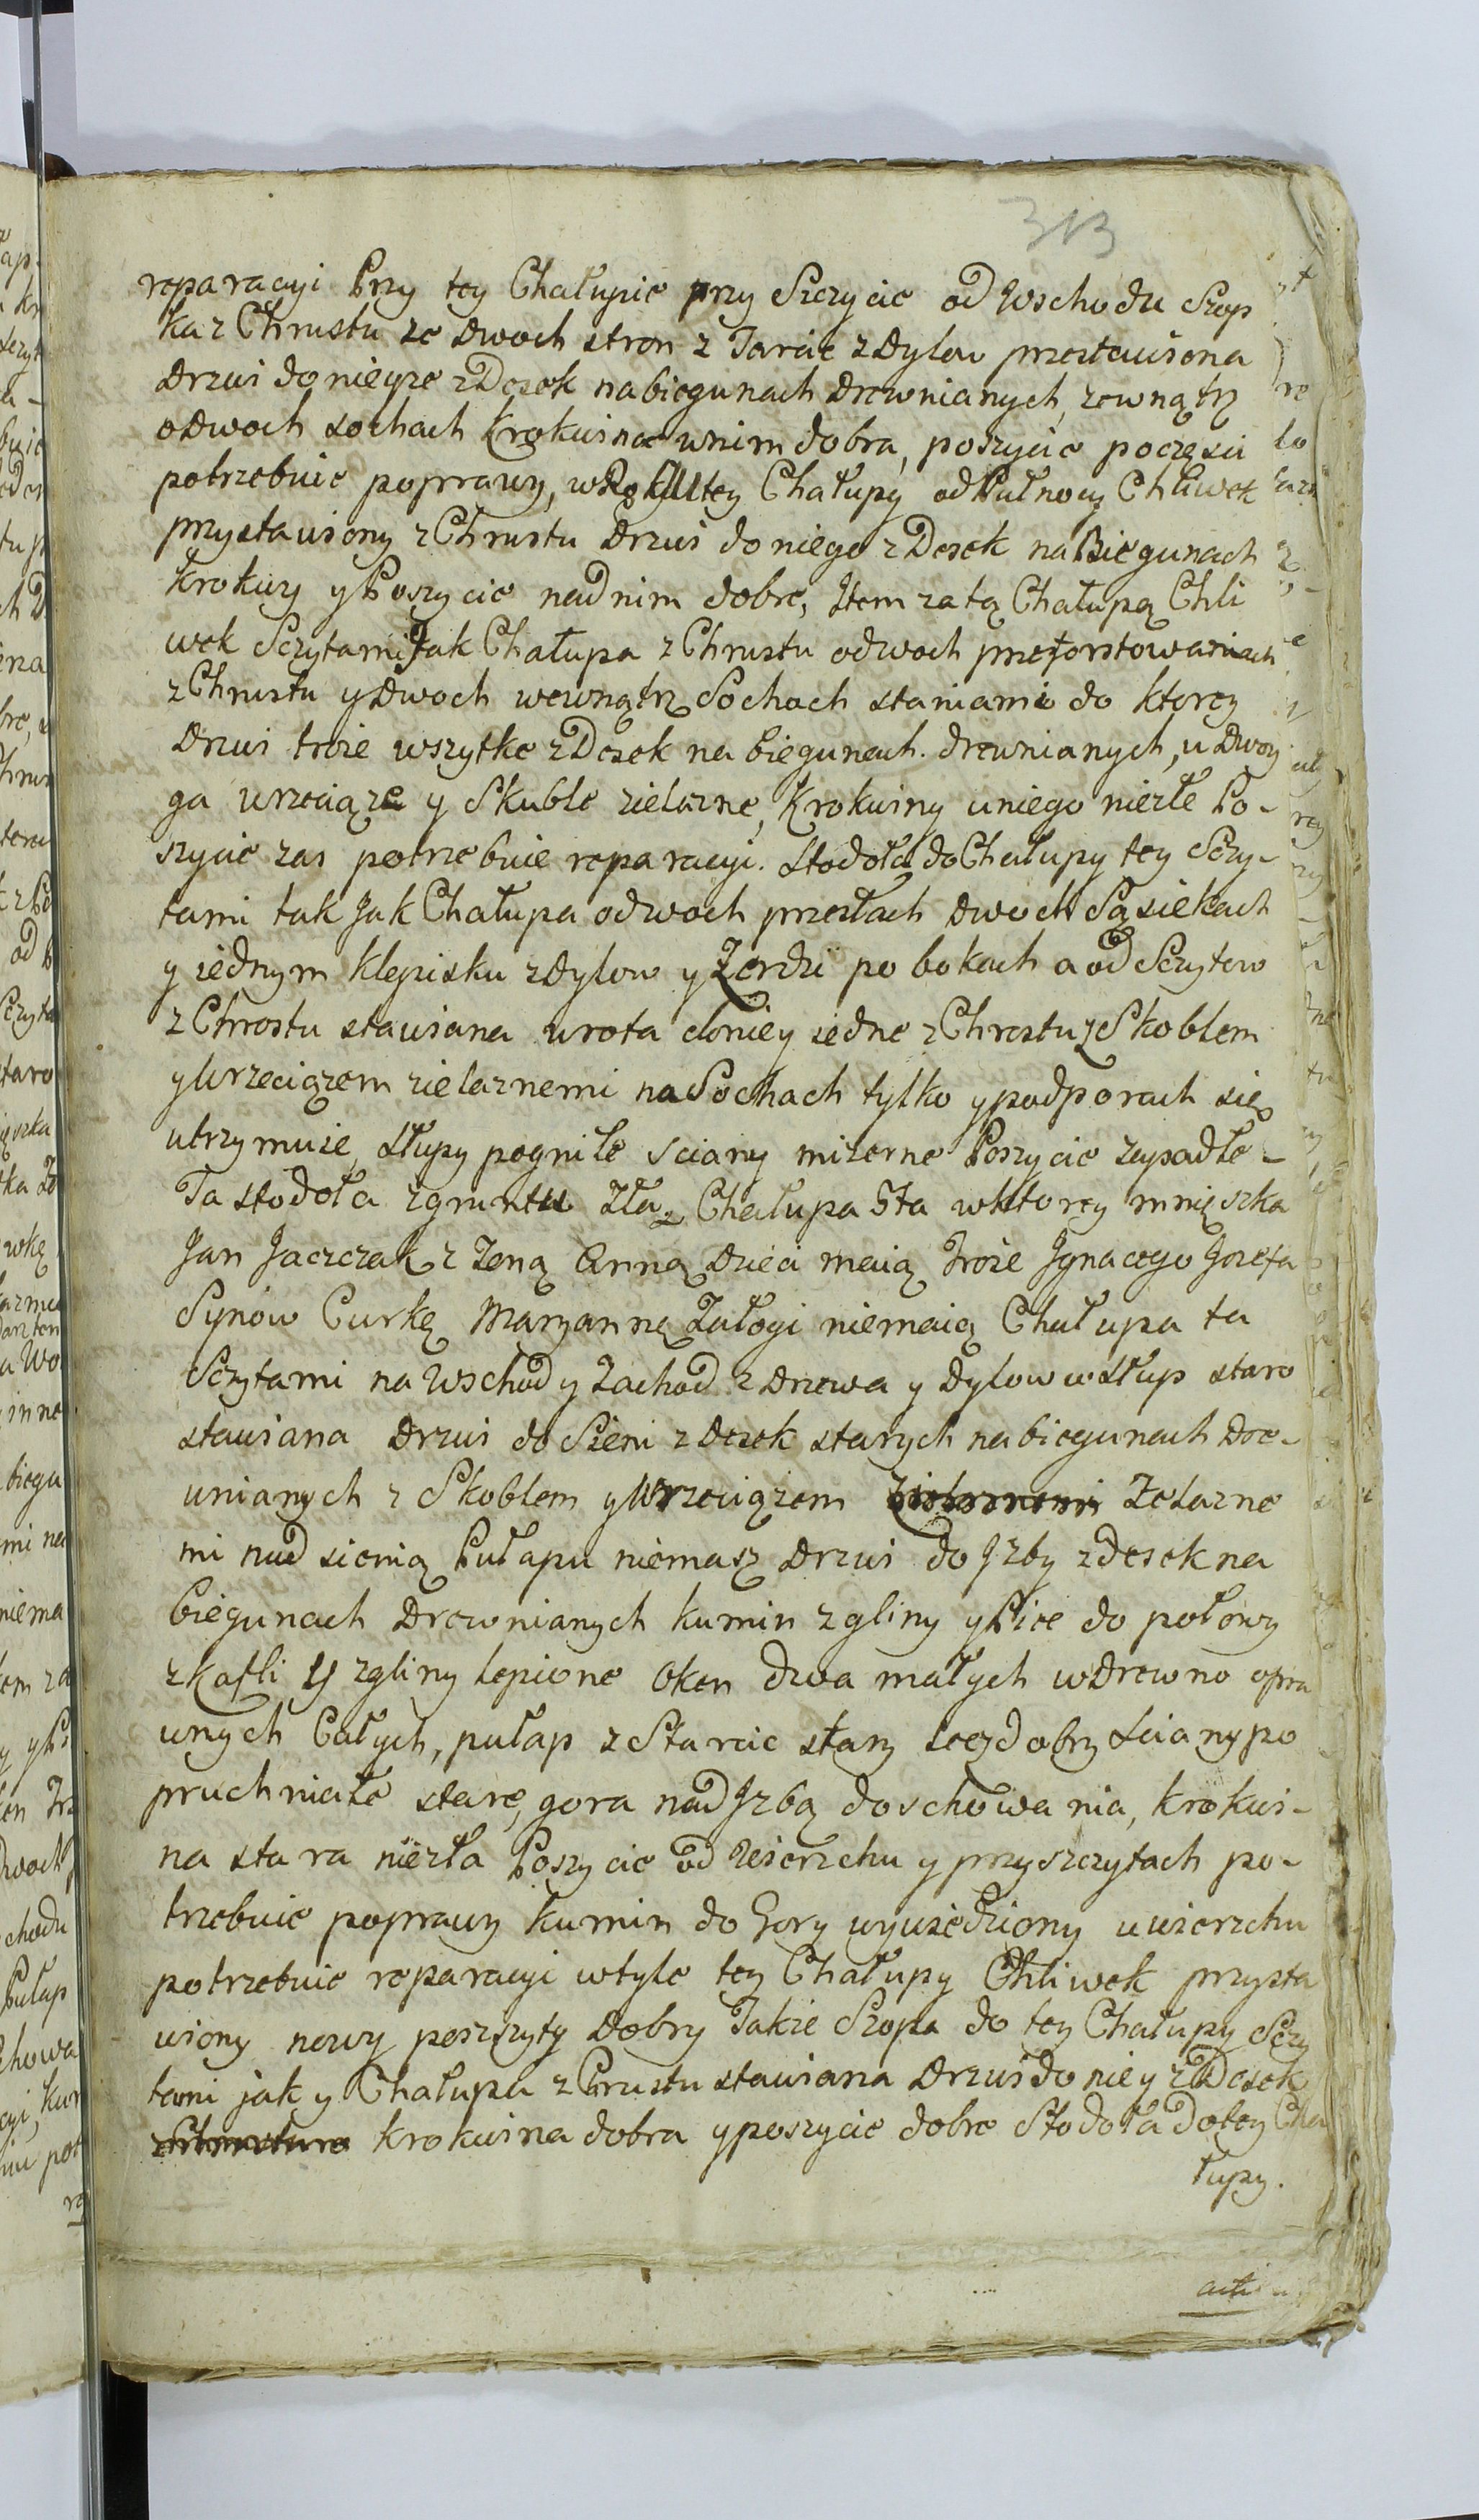 313
reparacyi Przy tey Chałupie przy Szczycie od Wschodu Szop
ka z Chrustu ze dwoch stron z Tarcic z Dylow przestawiona
Drzwi do nieyze z Desek na biegunach Drewnianych, zewnątrz
o dwoch sochach Krokwina w nim dobra, poszycie poczęsci
potrzebuie poprawy, w tey Chałupy od Pułnocy Chliwek
przystawiony z Chrustu Drzwi do niego z Desek na Biegunach
Krokwy y Poszycie nad nim dobre, Item za tą Chałupą Chli
wek Sczytami Jak Chałupa z Chrustu o dwoch przeforstowaniach
z Chrustu y Dwoch wewnątrz Sochach staniami do ktorey
Drzwi troie wszytke z Desek na biegunach drewnianych, u dwoy
ga wrzeciąze y Skuble zielazne, Krokwiny u niego niezłe Po-
szycie zas potrzebuie reparacyi. Stodoła do Chałupy tey Sczy-
tami tak Jak Chałupa o dwoch przesłach Dwoch Sąsiekach
y iednym klepisku z Dylow y Zerdzi po bokach a od Sczytow
z Chrostu stawiana wrota do niey iedne z Chrostu z Skoblem
y Wrzeciązem zielaznemi na Sochach tylko y podporach się
utrzymuie, Słupy pogniłe sciany mizerne Poszycie zapadłe -
Ta stodoła z gruntu Zła. Chałupa 5ta w ktorey mnięszka
Jan Jaczczak z Zoną Anną Dzieci maią Troie Jgnacego Jozefa
Synow Curkę Maryannę Załogi niemaią Chałupa ta
Sczytami na Wschod y Zachod z Drzewa y Dylow w Słup staro
stawiana Drzwi do Sieni z Desek starych na biegunach Dre-
wnianych z Skoblem y Wrzeciązem Zelazne
mi nad sienią Pułapu niemasz Drzwi do Jzby z desek na
Biegunach Drewnianych kumin z gliny y Piec do połowy
z kafli y z gliny lepione Oken dwa małych w Drewno opra
wnych Całych, pułap z Starcic stary lecz dobry Sciany po
pruchniałe stare, gora nad Jzbą do schowania, krokwi-
na stara niezła Poszycie od Wierzchu y przy szczytach po-
trzebuie poprawy kumin do Gory wywiedziony u wierzchu
potrzebuie reparacyi w tyle tey Chałupy Chliwek przysta
wiony nowy poszszyty Dobry Takze Szopa do tey Chałupy Sczy
tami jak y Chałupa z Chrustu stawiana Drzwi do niey z Desek
krokwina dobra y poszycie dobre Stodoła do tey Cha
łupy.